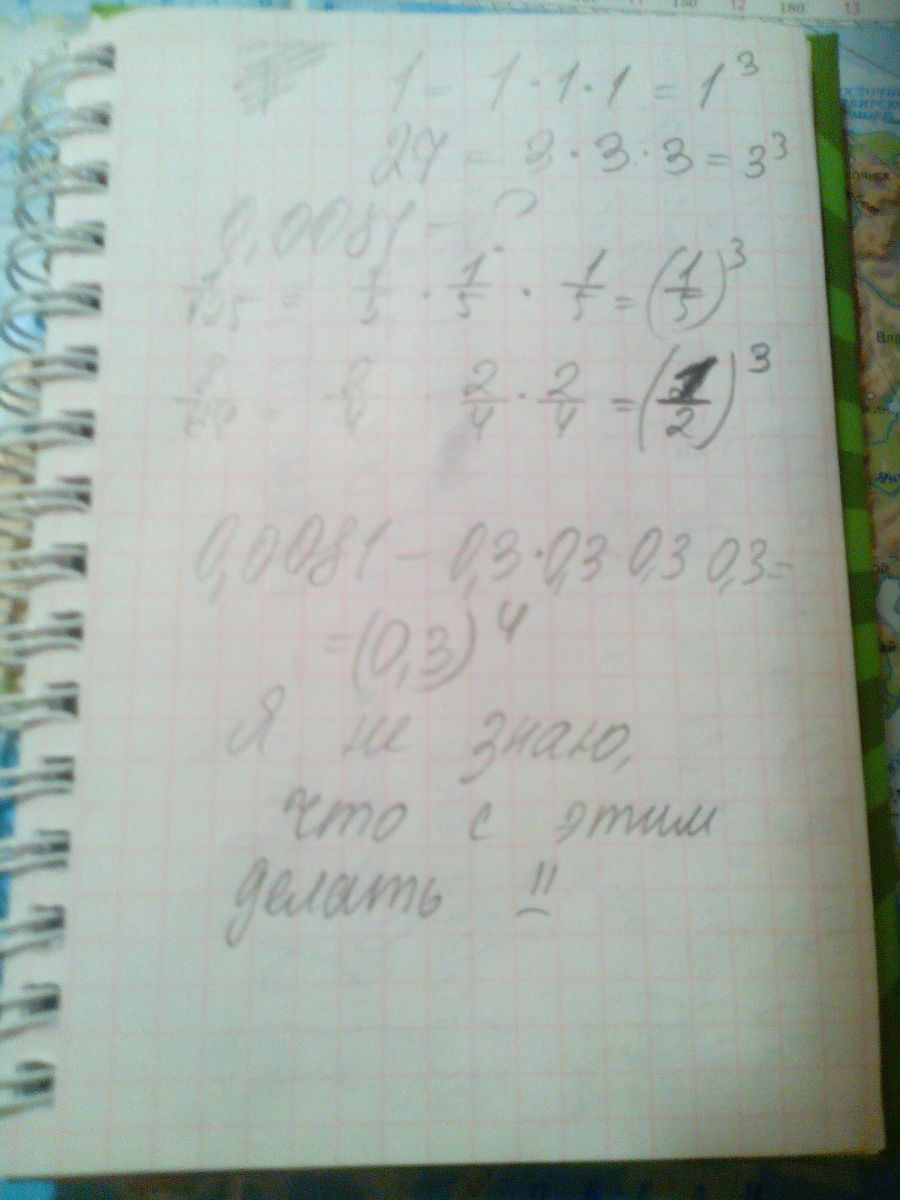 1 = 1 · 1 · 1 = 1³
27 = 3 · 3 · 3 = 3³
0,0081 – ?
1/125 = 1/5 · 1/5 · 1/5 = (1/5)³
= 2/4 2/4 · 2/4 = (1/2)³
0,0081 – 0,3 · 0,3 0,3 0,3 =
= (0,3)⁴
Я не знаю,
что с этим
делать !!